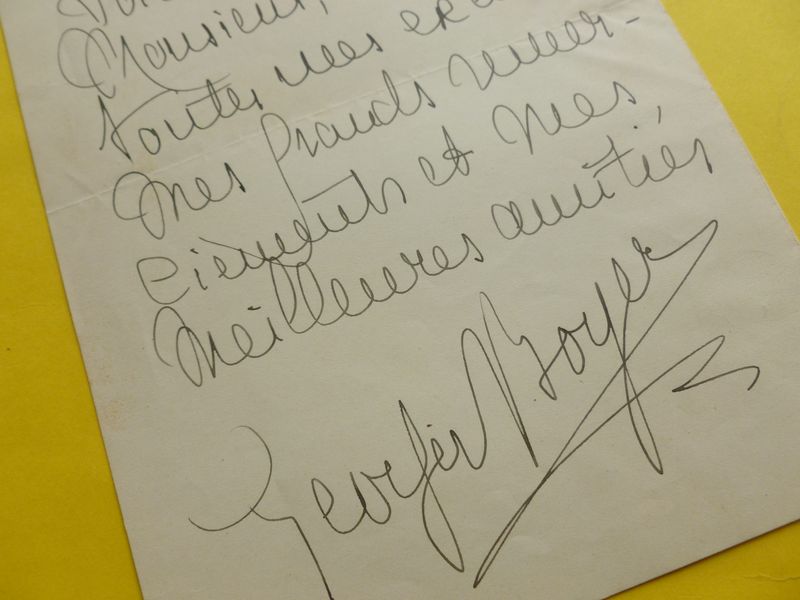 Monsieur,
toutes mes
mes grands remer-
ciements et mes
meilleures amitiés
Georges Boyer